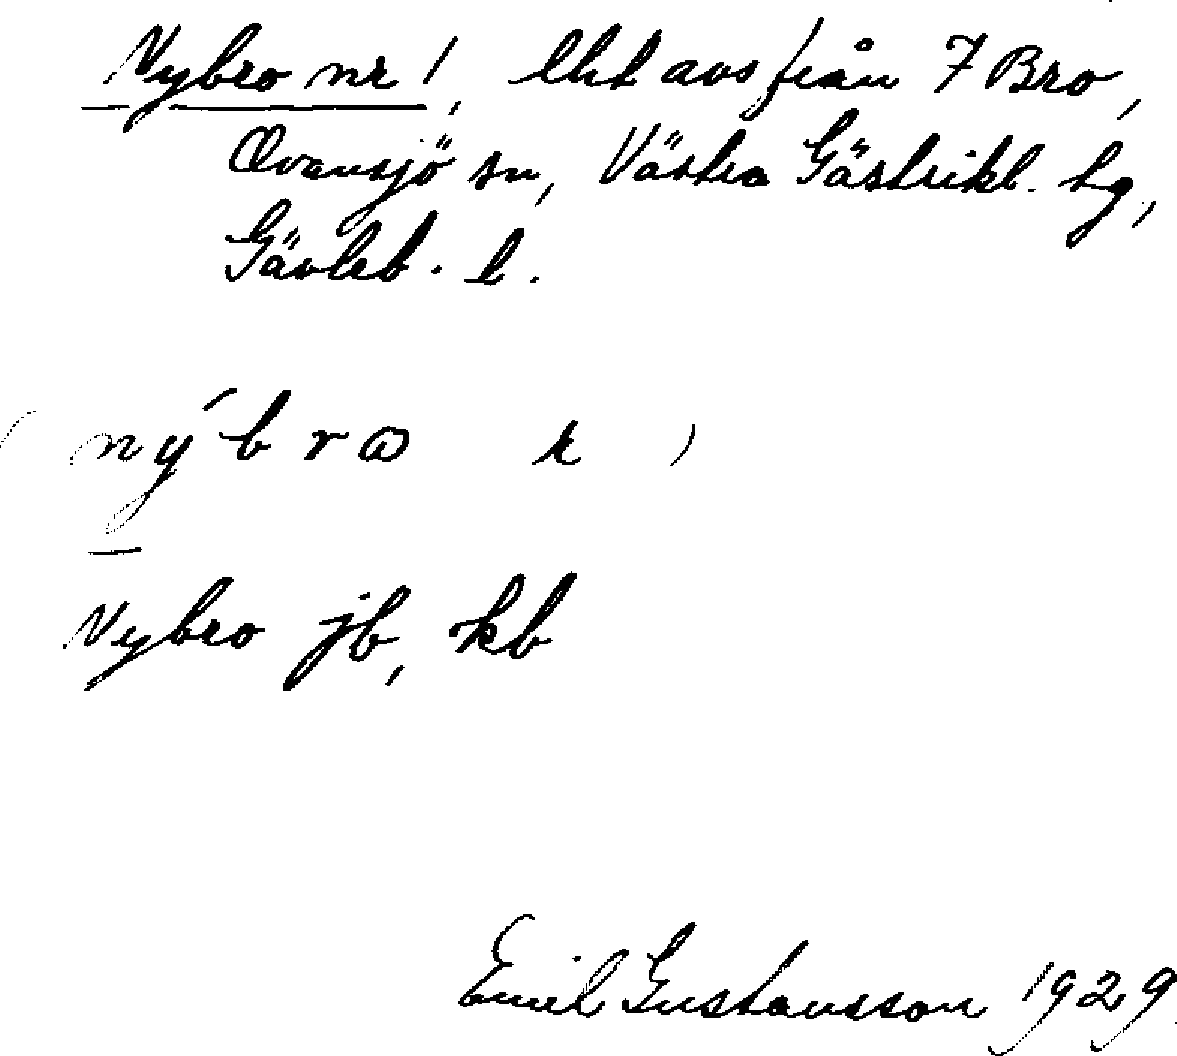 Nybro nr 1, lht avs från 7 Bro,
Ovansjö sn, Västra Gästrikl. tg,
Gävleb. l.
(nýbrω k)
Nybro jb, kb
Emil Gustavsson 1929